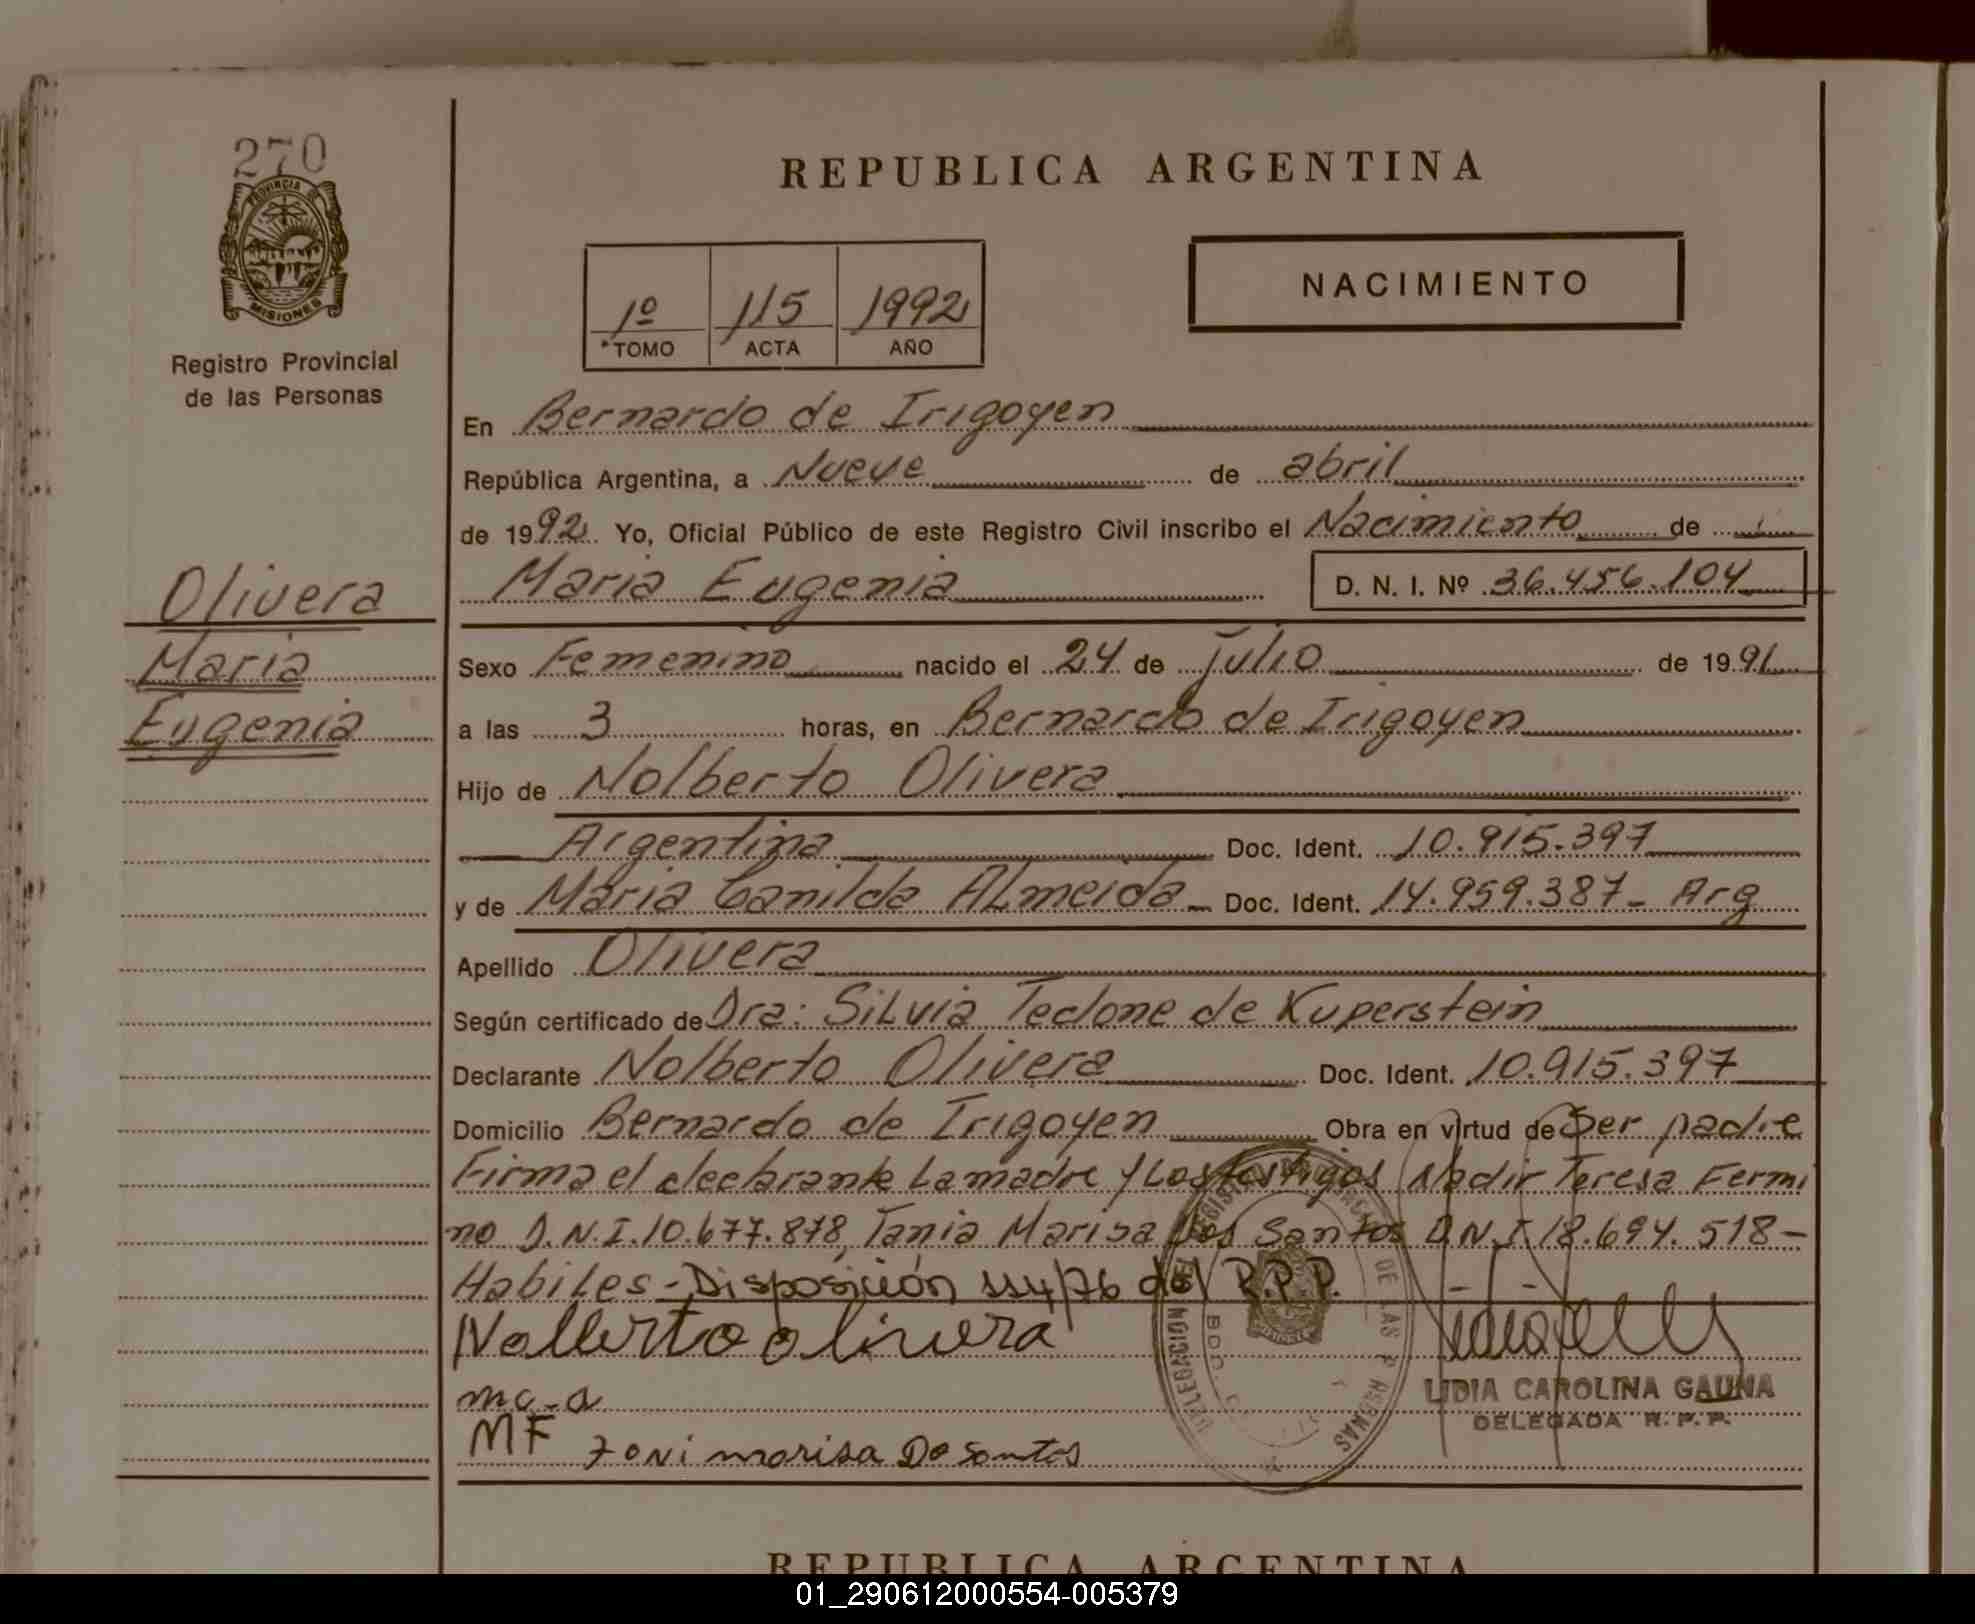 270
PROVINCIA DE
MISIONES
Registro Provincial
de las Personas
REPUBLICA ARGENTINA
1º 115 1992
TOMO ACTA AÑO
NACIMIENTO
En Bernardo de Irigoyen
República Argentina, a Nueve de abril
de 1992 Yo, Oficial Público de este Registro Civil inscribo el Nacimiento de
Maria Eugenia D. N. I. Nº 36.456.104
Olivera
Maria
Eugenia
Sexo Femenino nacido el 24 de julio de 1991
a las 3 horas, en Bernardo de Irigoyen
Hijo de Nolberto Olivera
Argentina Doc. Ident. 10.915.397
y de Maria Canilda ALmeida - Doc. Ident. 14.959.387 - Arg
Apellido Olivera
Según certificado de Dra: SiLvia Tedone de Kuperstein
Declarante Nolberto Olivera Doc. Ident. 10.915.397
Domicilio Bernardo de Irigoyen Obra en virtud de Ser padre
Firma el declarante La madre y Los testigos Nadir Teresa Fermi
no D.N.I. 10.677.878, Tania Marisa Dos Santos D.N.I. 18.694.518 -
HabiLes - Disposición 114/76 del R.P.P.
Nolberto olivera
mc-a
MF Zoni marisa Do Santos
LIDIA CAROLINA GAUNA
DELEGADA R. P. P.
REPUBLICA ARGENTINA
01_290612000554-005379